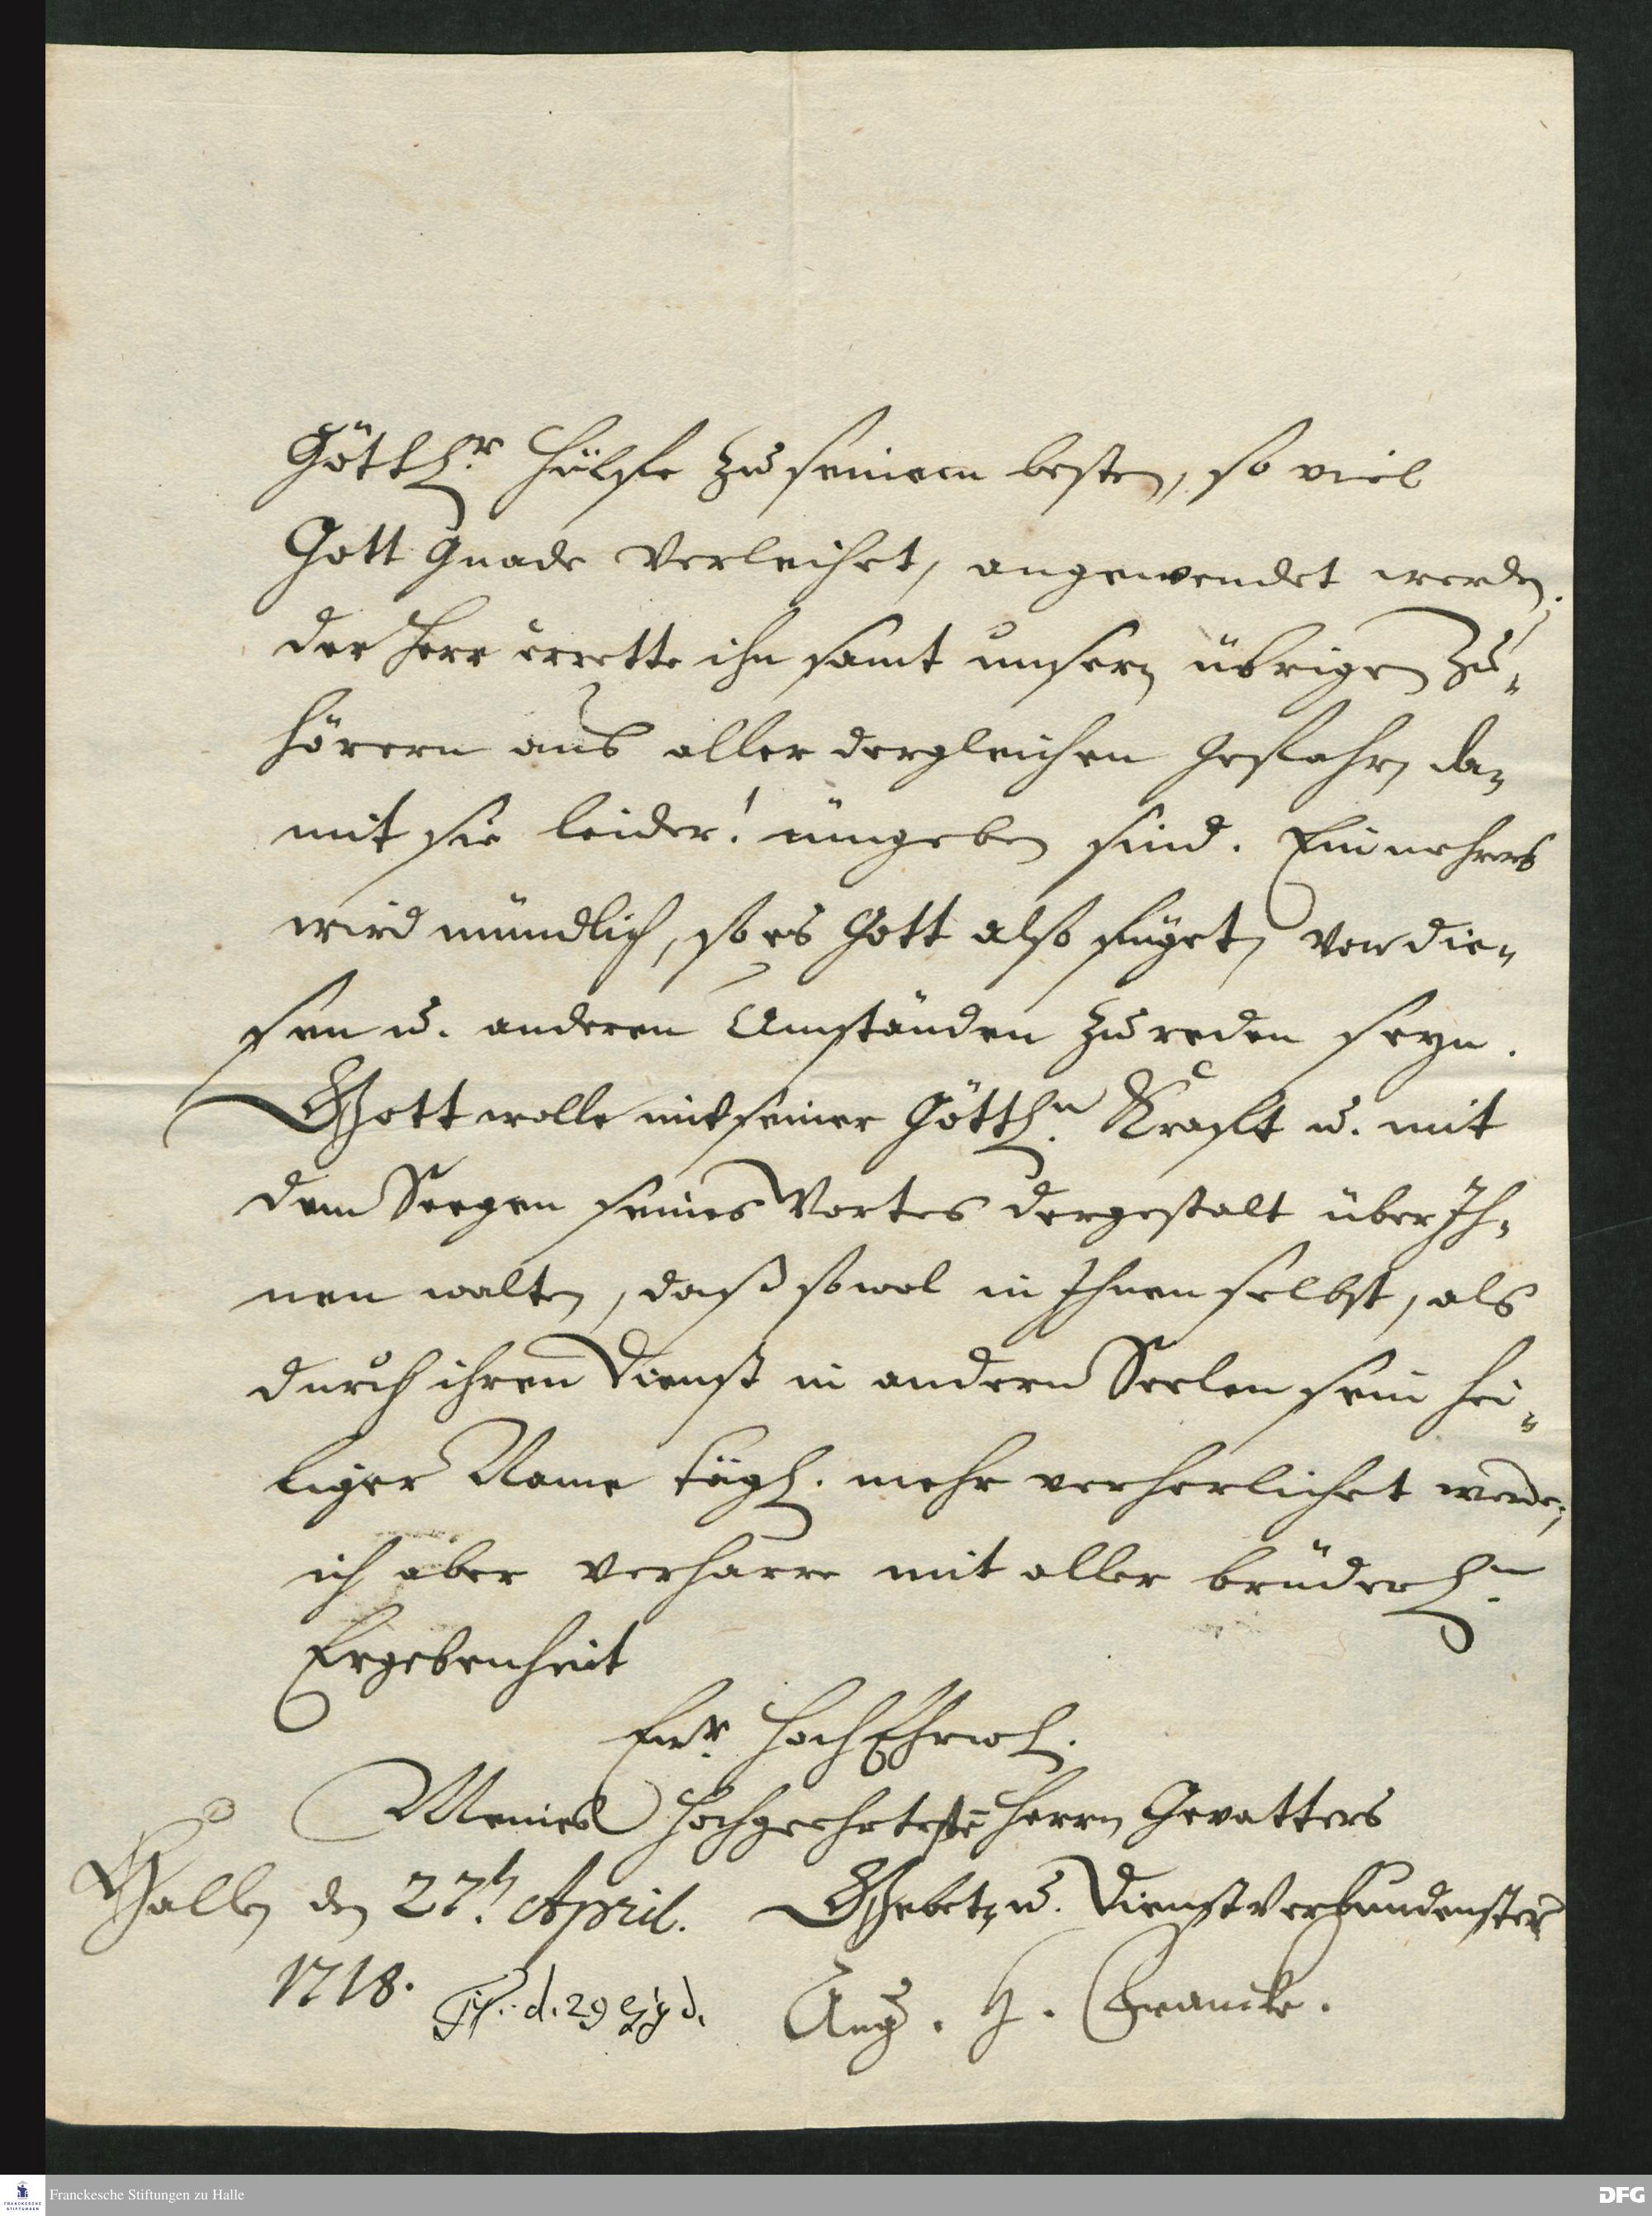 Göttlr. Hülffe zu seinem besten, so viel
Gott Gnade verleihet, angewendet werden.
der Herr errette ihn samt unsern übrigen Zu-
hörern aus aller dergleichen Gefahr, da-
mit sie leider! ümgeben sind. Ein mehrers
wird mündlich, so es Gott also füget, von die-
sen u. anderen Umständen zu reden seyn.
Gott wolle mit seiner Göttln. Krafft u. mit
dem Seegen seines Wortes dergestalt über Ih-
nen walten, daß sowol in Ihnen selbst, als
durch ihren Dienst in andern Seelen sein hei-
liger Name tägl. mehr verherlichet werde,
ich aber verharre mit aller brüderln.
Ergebenheit
Ewr. HochEhrwl.
Meines Hochgeehrtesten Herrn Gevatters
Halle, den 27. April. Gebet- u. Dienstverbundenster
1718. d. 29 ejusd. Aug. H. Francke.
Franckesche Stiftungen zu Halle
DFG
FRANCKESCHE
STIFTUNGEN